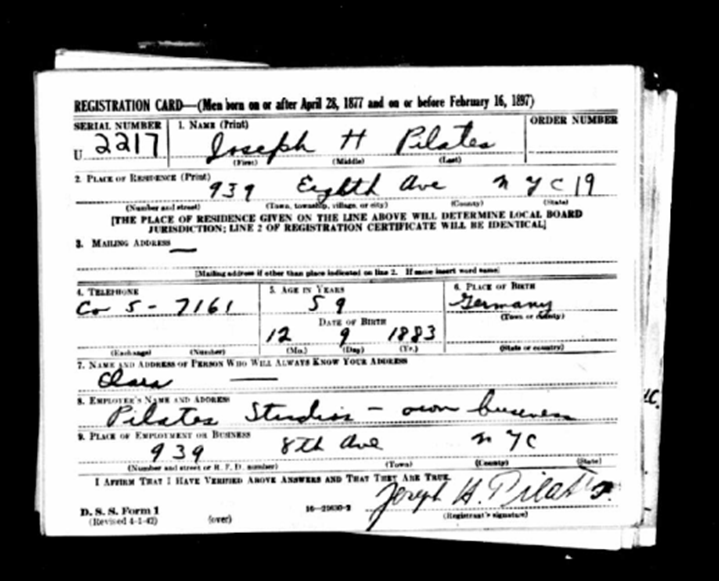 REGISTRATION CARD—(Men born on or after April 28, 1877 and on or before February 16, 1897)
SERIAL NUMBER 1. NAME (Print) ORDER NUMBER
U 2217 Joseph H Pilates
(First) (Middle) (Last)
2. PLACE OF RESIDENCE (Print)
939 Eighth Ave N Y C 19
(Number and street) (Town, township, village, or city) (County) (State)
[THE PLACE OF RESIDENCE GIVEN ON THE LINE ABOVE WILL DETERMINE LOCAL BOARD
JURISDICTION; LINE 2 OF REGISTRATION CERTIFICATE WILL BE IDENTICAL]
3. MAILING ADDRESS —
[Mailing address if other than place indicated on line 2. If same insert word same]
4. TELEPHONE 5. AGE IN YEARS 6. PLACE OF BIRTH
Co 5-7161 59 Germany
DATE OF BIRTH (Town or county)
12 9 1883
(Exchange) (Number) (Mo.) (Day) (Yr.) (State or country)
7. NAME AND ADDRESS OF PERSON WHO WILL ALWAYS KNOW YOUR ADDRESS
Clara —
8. EMPLOYER'S NAME AND ADDRESS
Pilates Studios - own business
9. PLACE OF EMPLOYMENT OR BUSINESS
939 8th Ave N Y C
(Number and street or R. F. D. number) (Town) (County) (State)
I AFFIRM THAT I HAVE VERIFIED ABOVE ANSWERS AND THAT THEY ARE TRUE.
Joseph H. Pilates
D. S. S. Form 1 16—21630-2 (Registrant's signature)
(Revised 4-1-42) (over)